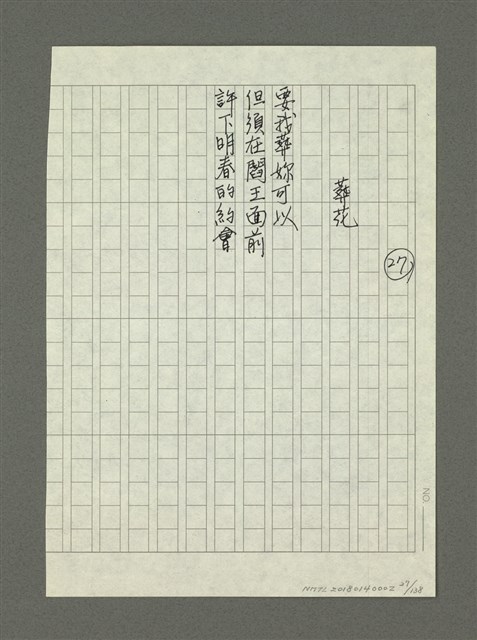 27
葬花
要我葬妳可以
但須在閻王面前
許下明春的約會
NO.
NMTL20180140002 27/138